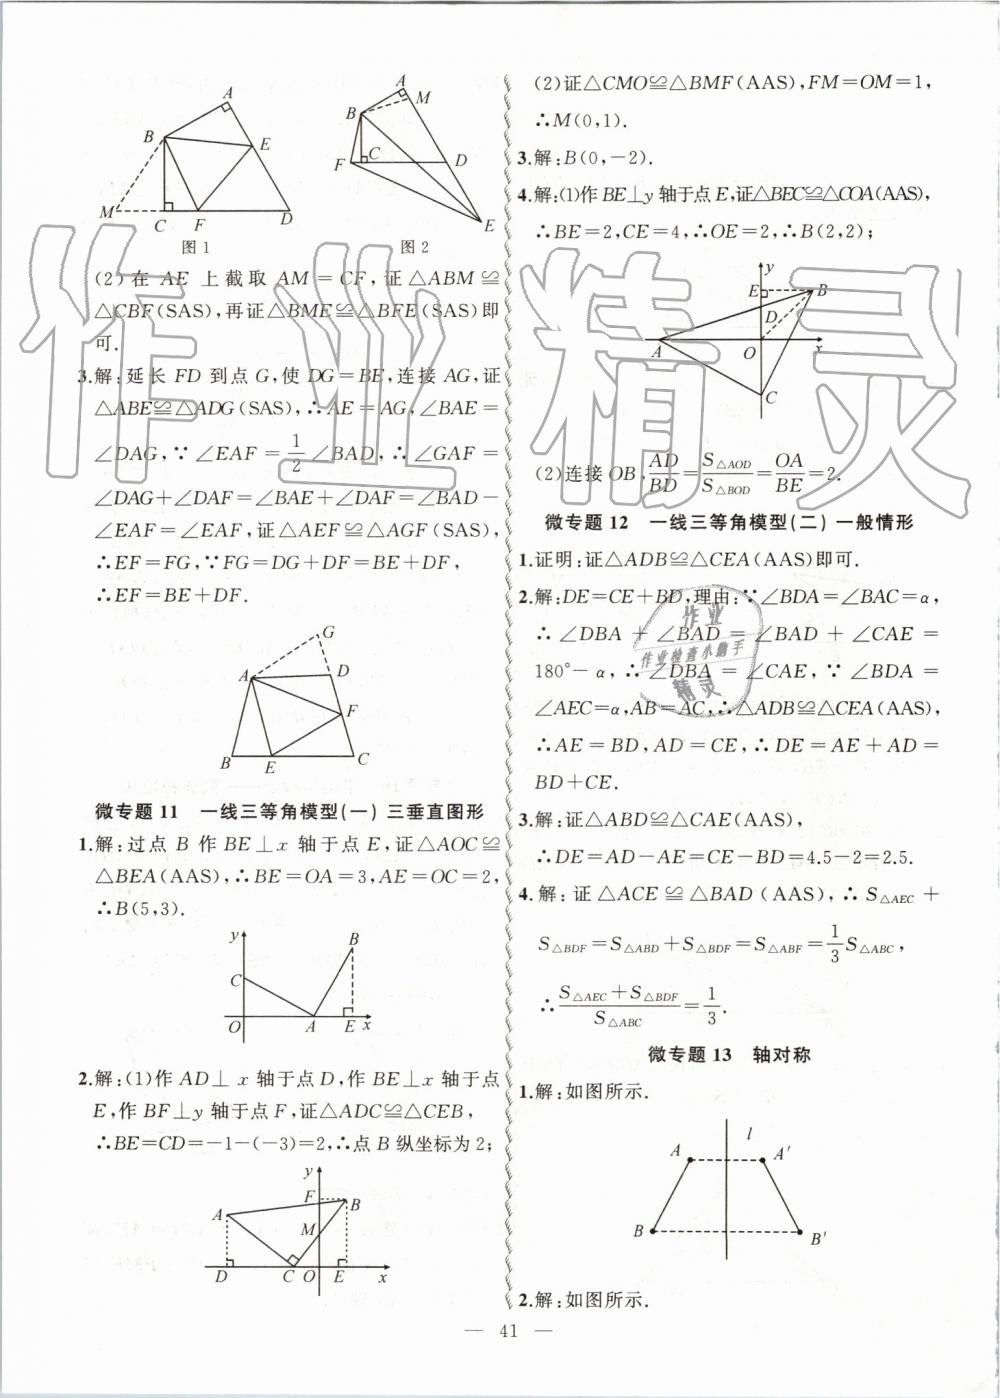 A
B
E
M
C
F
D
图1
A
M
B
F
C
D
E
图2
(2)在 AE 上截取 AM=CF,证△ABM≌
△CBF(SAS),再证△BME≌△BFE(SAS)即
可.
3.解:延长 FD 到点 G,使 DG=BE,连接 AG,证
△ABE≌△ADG(SAS),∴AE=AG,∠BAE=
∠DAG,∵∠EAF=1/2∠BAD,∴∠GAF=
∠DAG+∠DAF=∠BAE+∠DAF=∠BAD−
∠EAF=∠EAF,证△AEF≌△AGF(SAS),
∴EF=FG,∵FG=DG+DF=BE+DF,
∴EF=BE+DF.
G
A
D
F
B
E
C
微专题 11 一线三等角模型(一) 三垂直图形
1.解:过点 B 作 BE⊥x 轴于点 E,证△AOC≌
△BEA(AAS),∴BE=OA=3,AE=OC=2,
∴B(5,3).
y
B
C
O
A
E
x
2.解:(1)作 AD⊥x 轴于点 D,作 BE⊥x 轴于点
E,作 BF⊥y 轴于点 F,证△ADC≌△CEB,
∴BE=CD=−1−(−3)=2,∴点 B 纵坐标为 2;
y
F
B
A
M
D
C
O
E
x
(2)证△CMO≌△BMF(AAS),FM=OM=1,
∴M(0,1).
3.解:B(0,−2).
4.解:(1)作 BE⊥y 轴于点 E,证△BEC≌△COA(AAS),
∴BE=2,CE=4,∴OE=2,∴B(2,2);
y
E
B
D
A
O
x
C
(2)连接 OB,AD/BD=S△AOD/S△BOD=OA/BE=2.
微专题 12 一线三等角模型(二) 一般情形
1.证明:证△ADB≌△CEA(AAS)即可.
2.解:DE=CE+BD,理由:∵∠BDA=∠BAC=α,
∴∠DBA+∠BAD=∠BAD+∠CAE=
180°−α,∴∠DBA=∠CAE,∵∠BDA=
∠AEC=α,AB=AC,∴△ADB≌△CEA(AAS),
∴AE=BD,AD=CE,∴DE=AE+AD=
BD+CE.
3.解:证△ABD≌△CAE(AAS),
∴DE=AD−AE=CE−BD=4.5−2=2.5.
4.解:证△ACE≌△BAD(AAS),∴S△AEC+
S△BDF=S△ABD+S△BDF=S△ABF=1/3S△ABC,
∴(S△AEC+S△BDF)/S△ABC=1/3.
微专题 13 轴对称
1.解:如图所示.
l
A
A′
B
B′
2.解:如图所示.
— 41 —
作业精灵
作业
作业检查小助手
精灵